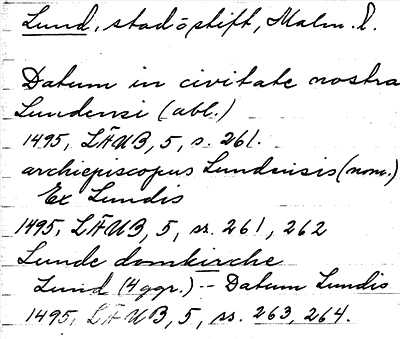 Lund, stad o stift, Malm. l.
Datum in civitate nostra
Lundensi (abl.)
1495, LÄUB, 5, s. 261.
archiepiscopus Lundensis (nom.)
Ex Lundis
1495, LÄUB, 5, ss. 261, 262
Lunde domkirche
Lund (4 ggr.) – Datum Lundis
1495, LÄUB, 5, ss. 263, 264.